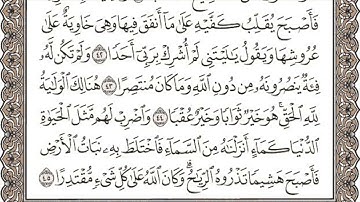 فَأَصْبَحَ يُقَلِّبُ كَفَّيْهِ عَلَىٰ مَآ أَنفَقَ فِيهَا وَهِىَ خَاوِيَةٌ عَلَىٰ
عُرُوشِهَا وَيَقُولُ يَٰلَيْتَنِى لَمْ أُشْرِكْ بِرَبِّىٓ أَحَدًا ٤٢ وَلَمْ تَكُن لَّهُۥ
فِئَةٌ يَنصُرُونَهُۥ مِن دُونِ ٱللَّهِ وَمَا كَانَ مُنتَصِرًا ٤٣ هُنَالِكَ ٱلْوَلَٰيَةُ
لِلَّهِ ٱلْحَقِّ هُوَ خَيْرٌ ثَوَابًا وَخَيْرٌ عُقْبًا ٤٤ وَٱضْرِبْ لَهُم مَّثَلَ ٱلْحَيَوٰةِ
ٱلدُّنْيَا كَمَآءٍ أَنزَلْنَٰهُ مِنَ ٱلسَّمَآءِ فَٱخْتَلَطَ بِهِۦ نَبَاتُ ٱلْأَرْضِ
فَأَصْبَحَ هَشِيمًا تَذْرُوهُ ٱلرِّيَٰحُ ۗ وَكَانَ ٱللَّهُ عَلَىٰ كُلِّ شَىْءٍ مُّقْتَدِرًا ٤٥